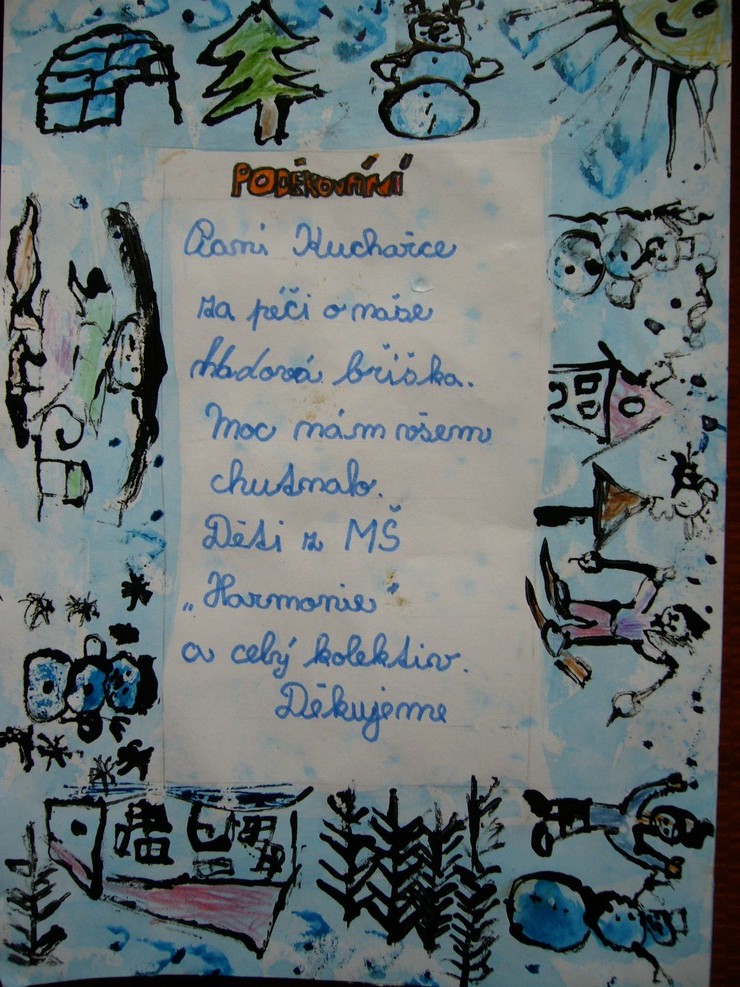 PODĚKOVÁNÍ
Paní Kuchařce
za péči o naše
hladová bříška.
Moc nám všem
chutnalo.
Děti z MŠ
„Harmonie"
a celý kolektiv.
Děkujeme